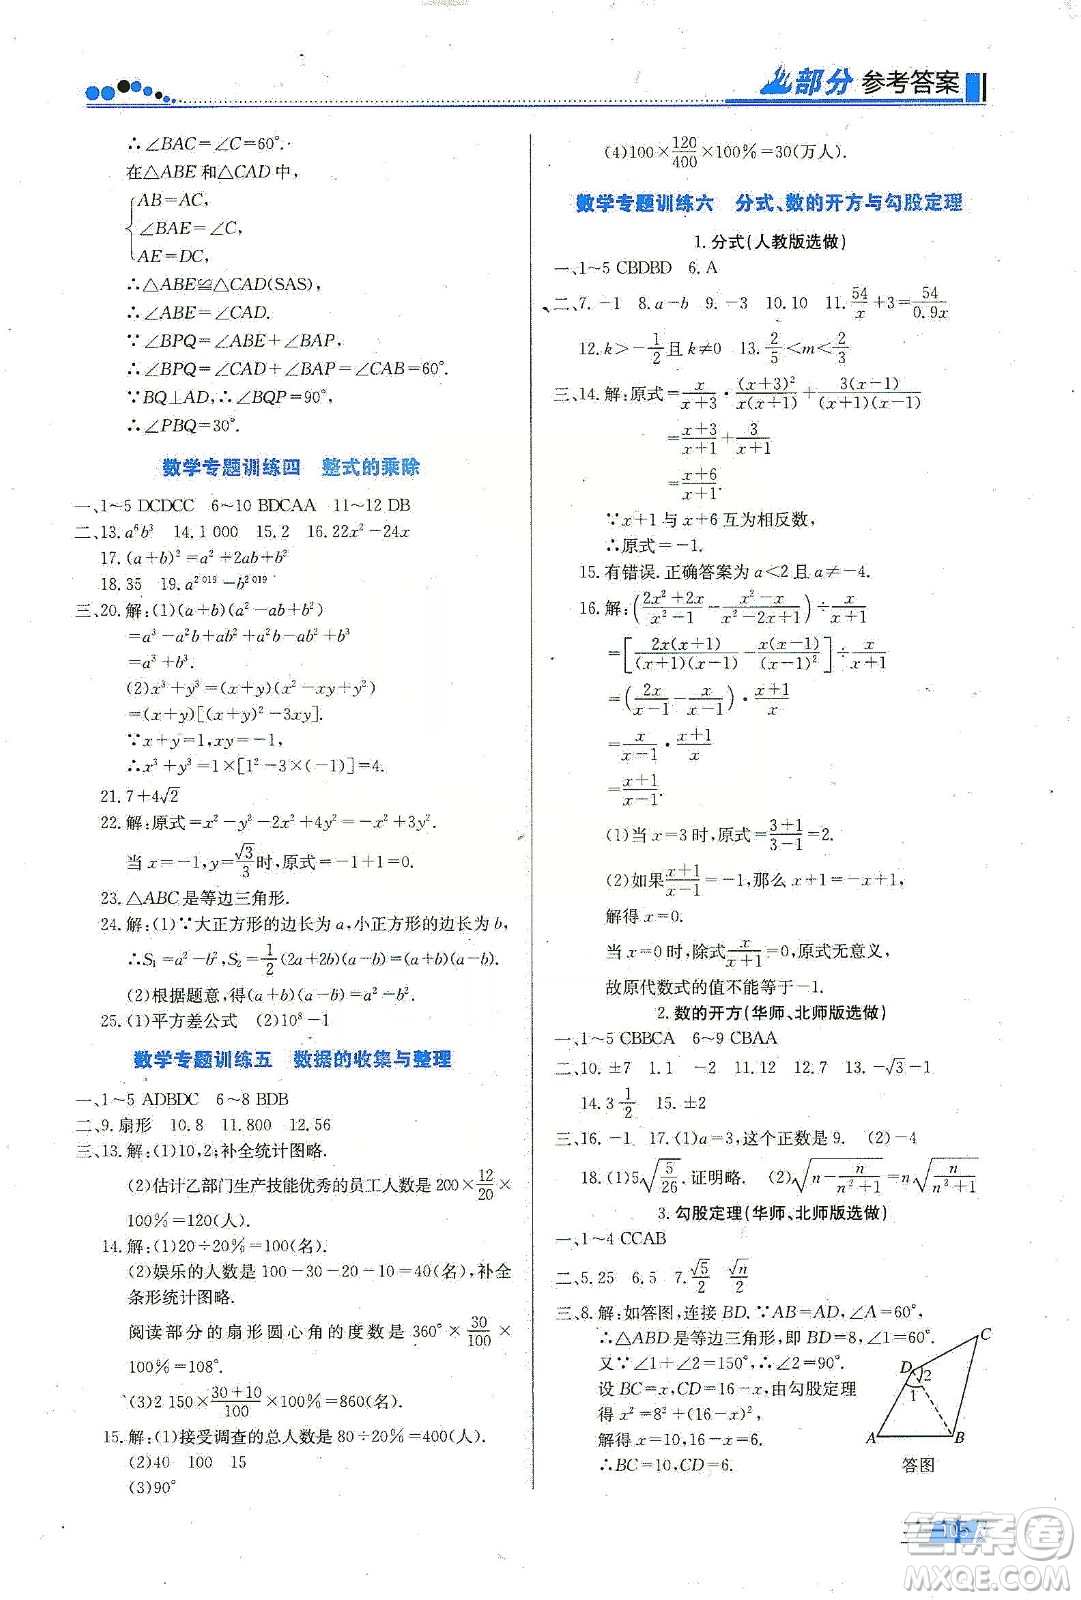 部分 参考答案
∴∠BAC=∠C=60°.
在△ABE和△CAD中,
AB=AC,
∠BAE=∠C,
AE=DC,
∴△ABE≌△CAD(SAS),
∴∠ABE=∠CAD.
∵∠BPQ=∠ABE+∠BAP,
∴∠BPQ=∠CAD+∠BAP=∠CAB=60°.
∵BQ⊥AD,∴∠BQP=90°,
∴∠PBQ=30°.
数学专题训练四 整式的乘除
一、1~5 DCDCC 6~10 BDCAA 11~12 DB
二、13.a⁶b³ 14.1 000 15.2 16.22x²-24x
17.(a+b)²=a²+2ab+b²
18.35 19.a²⁰¹⁹-b²⁰¹⁹
三、20.解:(1)(a+b)(a²-ab+b²)
=a³-a²b+ab²+a²b-ab²+b³
=a³+b³.
(2)x³+y³=(x+y)(x²-xy+y²)
=(x+y)[(x+y)²-3xy].
∵x+y=1,xy=-1,
∴x³+y³=1×[1²-3×(-1)]=4.
21.7+4√2
22.解:原式=x²-y²-2x²+4y²=-x²+3y².
当x=-1,y=√3/3时,原式=-1+1=0.
23.△ABC是等边三角形.
24.解:(1)∵大正方形的边长为a,小正方形的边长为b,
∴S₁=a²-b²,S₂=1/2(2a+2b)(a-b)=(a+b)(a-b).
(2)根据题意,得(a+b)(a-b)=a²-b².
25.(1)平方差公式 (2)10⁸-1
数学专题训练五 数据的收集与整理
一、1~5 ADBDC 6~8 BDB
二、9.扇形 10.8 11.800 12.56
三、13.解:(1)10,2;补全统计图略.
(2)估计乙部门生产技能优秀的员工人数是200×12/20×
100%=120(人).
14.解:(1)20÷20%=100(名).
(2)娱乐的人数是100-30-20-10=40(名),补全
条形统计图略.
阅读部分的扇形圆心角的度数是360°×30/100×
100%=108°.
(3)2 150×(30+10)/100×100%=860(名).
15.解:(1)接受调查的总人数是80÷20%=400(人).
(2)40 100 15
(3)90°
(4)100×120/400×100%=30(万人).
数学专题训练六 分式、数的开方与勾股定理
1.分式(人教版选做)
一、1~5 CBDBD 6.A
二、7.-1 8.a-b 9.-3 10.10 11.54/x+3=54/0.9x
12.k>-1/2且k≠0 13.2/5<m<2/3
三、14.解:原式=x/(x+3)·(x+3)²/x(x+1)+3(x-1)/(x+1)(x-1)
=(x+3)/(x+1)+3/(x+1)
=(x+6)/(x+1).
∵x+1与x+6互为相反数,
∴原式=-1.
15.有错误.正确答案为a<2且a≠-4.
16.解:((2x²+2x)/(x²-1)-(x²-x)/(x²-2x+1))÷x/(x+1)
=[2x(x+1)/(x+1)(x-1)-x(x-1)/(x-1)²]÷x/(x+1)
=(2x/(x-1)-x/(x-1))·(x+1)/x
=x/(x-1)·(x+1)/x
=(x+1)/(x-1).
(1)当x=3时,原式=(3+1)/(3-1)=2.
(2)如果(x+1)/(x-1)=-1,那么x+1=-x+1,
解得x=0.
当x=0时,除式x/(x+1)=0,原式无意义,
故原代数式的值不能等于-1.
2.数的开方(华师、北师版选做)
一、1~5 CBBCA 6~9 CBAA
二、10.±7 11.1 -2 12.π 13.-√3-1
14.3 1/2 15.±2
三、16.-1 17.(1)a=3,这个正数是9. (2)-4
18.(1)5√(5/26).证明略. (2)√(n-n/(n²+1))=n√(n/(n²+1))
3.勾股定理(华师、北师版选做)
一、1~4 CCAB
二、5.25 6.5 7.√5/2 √n/2
三、8.解:如答图,连接BD.∵AB=AD,∠A=60°,
∴△ABD是等边三角形,即BD=8,∠1=60°.
又∵∠1+∠2=150°,∴∠2=90°.
设BC=x,CD=16-x,由勾股定理
得x²=8²+(16-x)²,
解得x=10,16-x=6.
∴BC=10,CD=6.
C
D
2
1
A
B
答图
105
答案卷
MXQE.COM